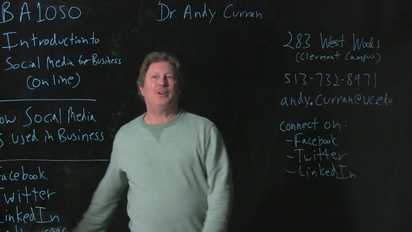 BA1050
Introduction to
Social Media for Business
(online)
Social Media
used in Business
Facebook
Twitter
LinkedIn
Dr. Andy Curran
283 West Woods
(Clermont Campus)
513-732-8971
andy.curran@uc.edu
Connect on:
-Facebook
-Twitter
-LinkedIn